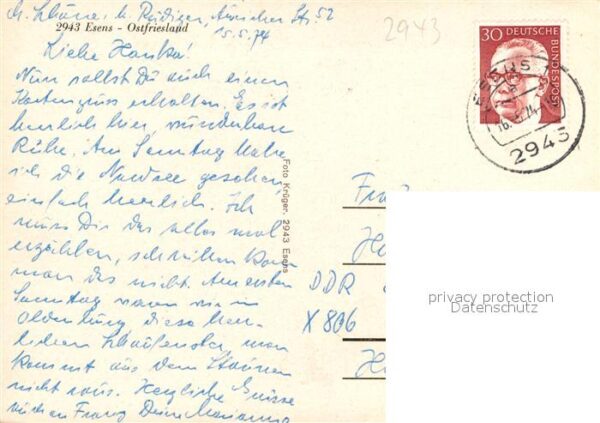 Rüdiger, Auricher Str. 52
2943 Esens - Ostfriesland
15.5.74
2943
Liebe Hanka!
Nun sollst Du auch einen
Kartengruss erhalten. Es ist
herrlich hier, wunderbare
Ruhe. Am Samstag habe
ich die Nordsee gesehen,
einfach herrlich. Ich
muss Dir das alles mal
erzählen, schreiben kann
man das nicht. Am ersten
Samstag waren wir in
Oldenburg diese herr-
lichen Schaufenster, man
kommt aus dem Staunen
nicht raus. Herzliche Grüsse
auch an Franz Deine Marianne
Foto Krüger, 2943 Esens
30 DEUTSCHE
BUNDESPOST
ESENS
2943
DDR
X 806
privacy protection
Datenschutz